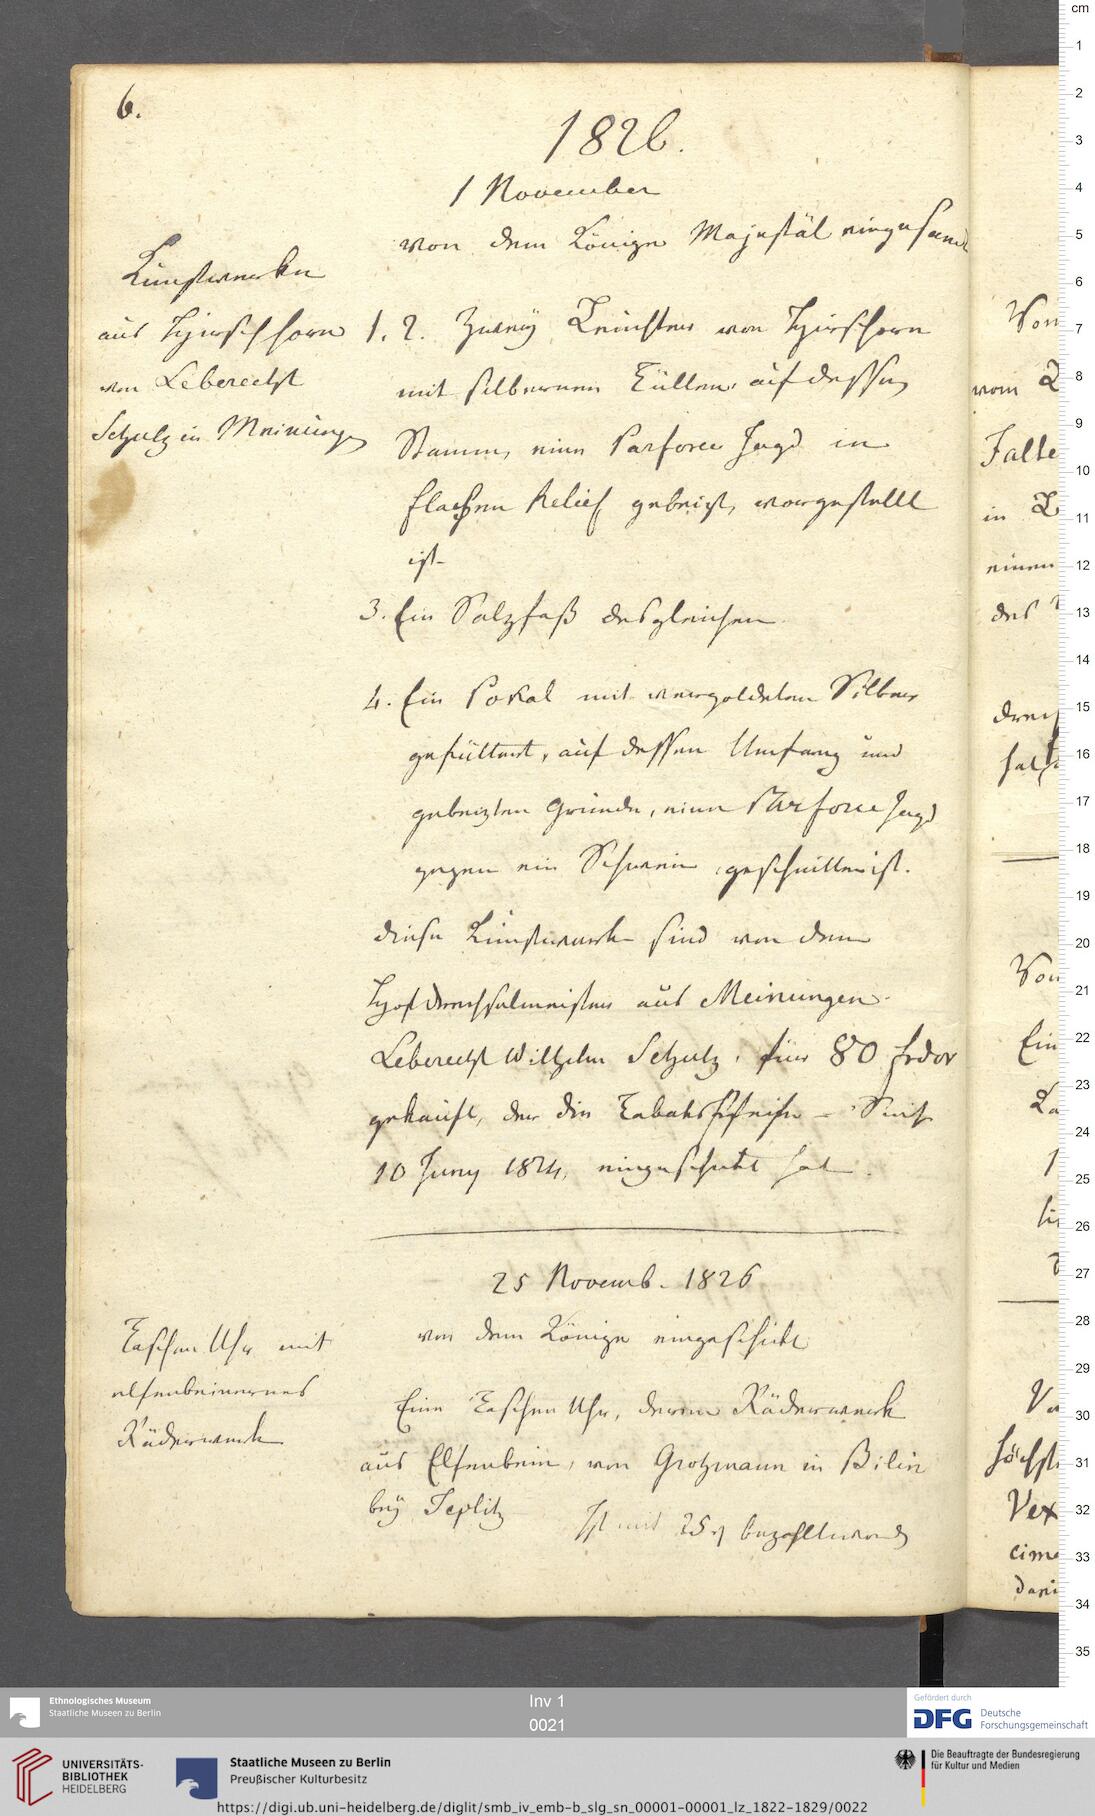 6.
1826.
1 November
von des Königs Majestät eingesandt
Kunstwerke
aus Hirschhorn
von Leberecht
Schulz in Meiningen
1. 2. Zwey Leuchter von Hirschorn
mit silbernen Tüllen, auf dessen
Stamm, eine Parforce Jagd in
flachen Relief gebeizt, vorgestellt
ist.
3. Ein Salzfaß desgleichen
4. Ein Pokal mit vergoldetem Silber
gefüttert, auf dessen Umfang und
gebeizten Grunde, eine Parforce Jagd
gegen ein Schwein geschnitten ist.
diese Kunstwerke sind von dem
Hofdrechselmeister aus Meinungen
Leberecht Wilhelm Schulz, für 80 frdor
gekauft, der die Tabakspfeife
10 Juny 1824, eingeschickt hat.
25 Novemb. 1826
von dem Könige eingeschickt
Taschen Uhr mit
elfenbeinernes
Räderwerk
Eine Taschen Uhr, deren Räderwerk
aus Elfenbein, von Grotzmann in Bilin
bey Teplitz
Ist mit 25 bezahlt worden
Von
vom
Falte
in
einen
des
Von
Ein
höchst
Vex
cm
1
2
3
4
5
6
7
8
9
10
11
12
13
14
15
16
17
18
19
20
21
22
23
24
25
26
27
28
29
30
31
32
33
34
35
Ethnologisches Museum
Staatliche Museen zu Berlin
Inv 1
0021
Gefördert durch
DFG Deutsche
Forschungsgemeinschaft
UNIVERSITÄTS-
BIBLIOTHEK
HEIDELBERG
Staatliche Museen zu Berlin
Preußischer Kulturbesitz
Die Beauftragte der Bundesregierung
für Kultur und Medien
https://digi.ub.uni-heidelberg.de/diglit/smb_iv_emb-b_slg_sn_00001-00001_lz_1822-1829/0022